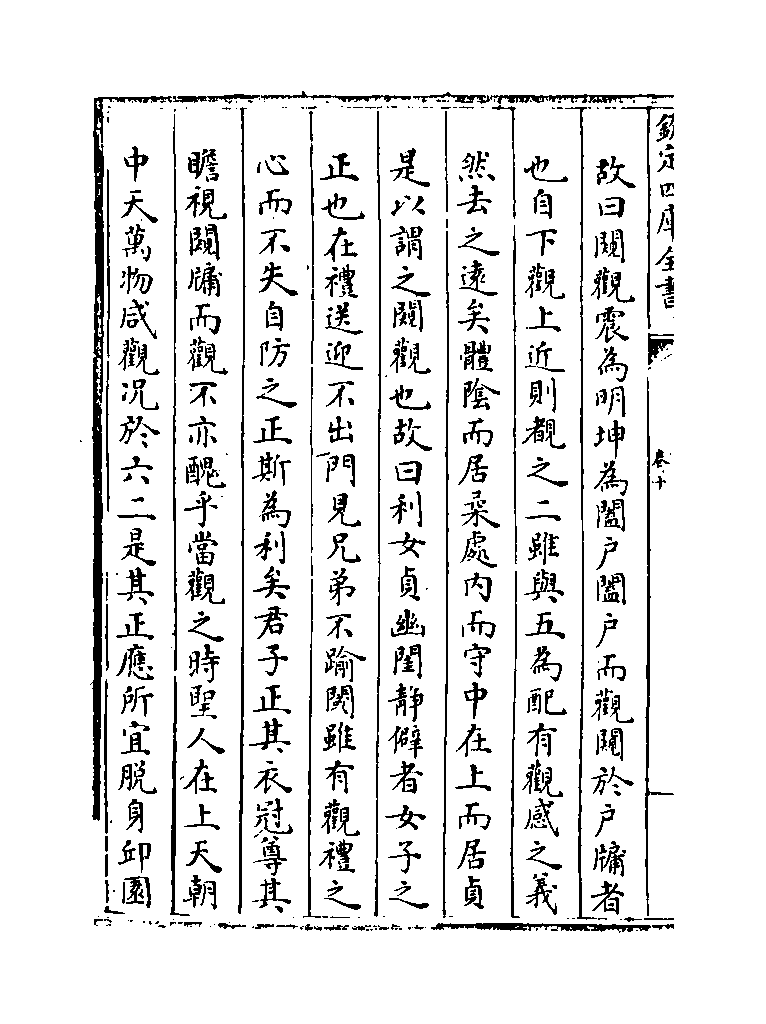 欽定四庫全書
卷十
故曰闚觀震為明坤為闔户闔户而觀闚於户牖者
也自下觀上近則覩之二雖與五為配有觀感之義
然去之逺矣體隂而居柔處内而守中在上而居貞
是以謂之闚觀也故曰利女貞幽閨静僻者女子之
正也在禮送迎不出門見兄弟不踰閾雖有觀禮之
心而不失自防之正斯為利矣君子正其衣冠尊其
瞻視闚牖而觀不亦醜乎當觀之時聖人在上天朝
中天萬物咸觀况於六二是其正應所宜脱身邱園